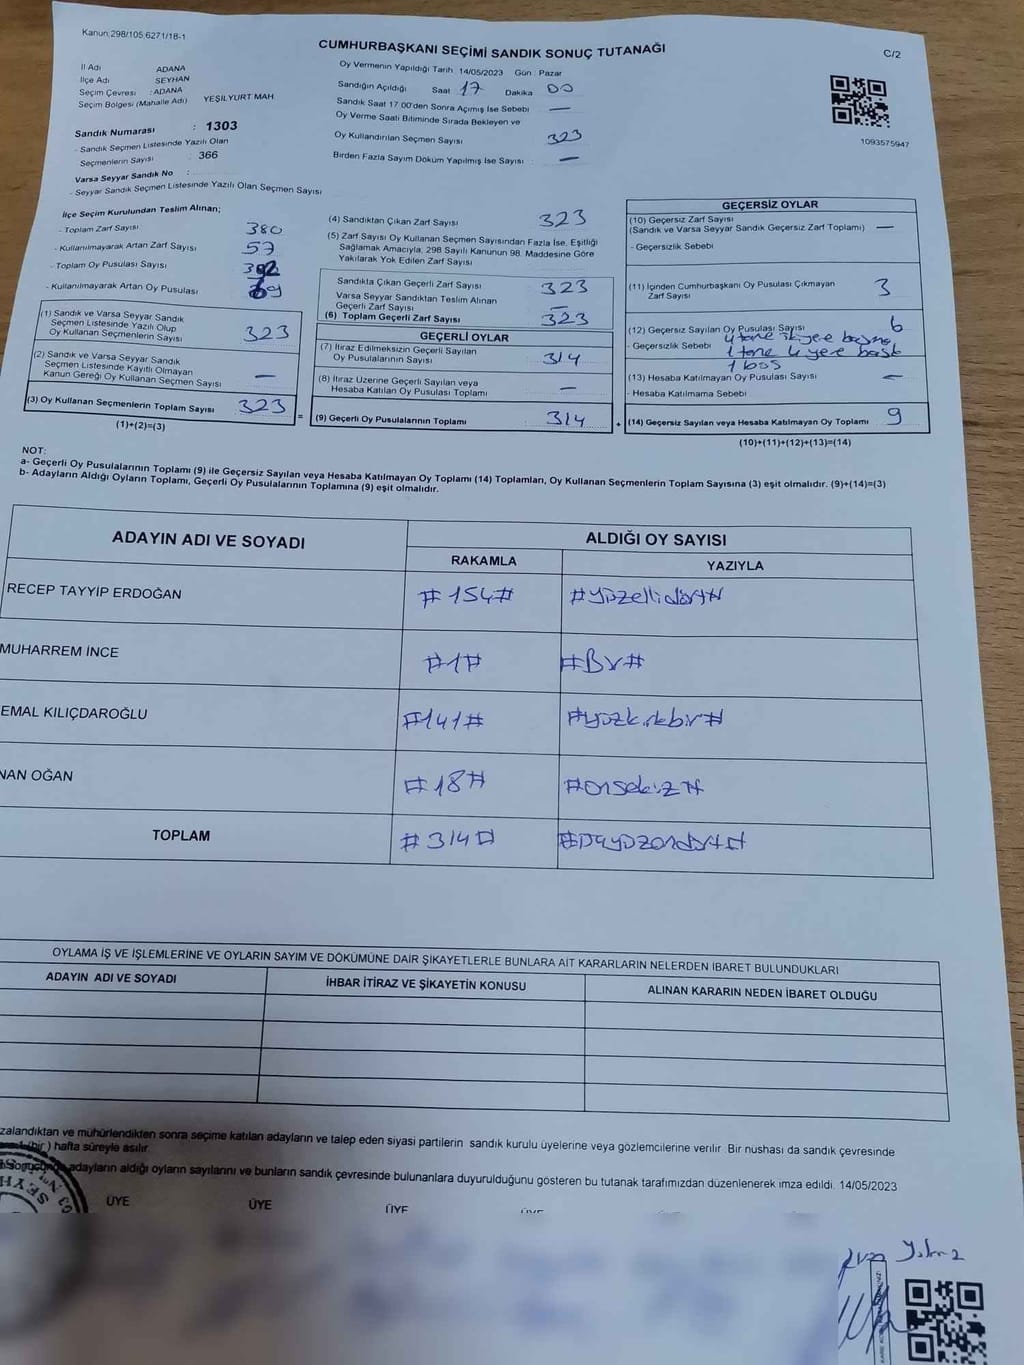 Kanun:298/105 6271/18-1
CUMHURBAŞKANI SEÇİMİ SANDIK SONUÇ TUTANAĞI
C/2
İl Adı ADANA
İlçe Adı SEYHAN
Seçim Çevresi : ADANA
Seçim Bölgesi (Mahalle Adı) YEŞİLYURT MAH.
Sandık Numarası : 1303
- Sandık Seçmen Listesinde Yazılı Olan
Seçmenlerin Sayısı : 366
Varsa Seyyar Sandık No :
- Seyyar Sandık Seçmen Listesinde Yazılı Olan Seçmen Sayısı
Oy Vermenin Yapıldığı Tarih 14/05/2023 Gün : Pazar
Sandığın Açıldığı Saat 17 Dakika 00
Sandık Saat 17.00'den Sonra Açımış İse Sebebi —
Oy Verme Saati Bitiminde Sırada Bekleyen ve
Oy Kullandırılan Seçmen Sayısı 323
Birden Fazla Sayım Döküm Yapılmış İse Sayısı : —
1093575947
İlçe Seçim Kurulundan Teslim Alınan;
- Toplam Zarf Sayısı 380
- Kullanılmayarak Artan Zarf Sayısı 57
- Toplam Oy Pusulası Sayısı
- Kullanılmayarak Artan Oy Pusulası
(1) Sandık ve Varsa Seyyar Sandık
Seçmen Listesinde Yazılı Olup
Oy Kullanan Seçmenlerin Sayısı 323
(2) Sandık ve Varsa Seyyar Sandık
Seçmen Listesinde Kayıtlı Olmayan
Kanun Gereği Oy Kullanan Seçmen Sayısı —
(3) Oy Kullanan Seçmenlerin Toplam Sayısı 323 =
(1)+(2)=(3)
(4) Sandıktan Çıkan Zarf Sayısı 323
(5) Zarf Sayısı Oy Kullanan Seçmen Sayısından Fazla İse, Eşitliği
Sağlamak Amacıyla, 298 Sayılı Kanunun 98. Maddesine Göre
Yakılarak Yok Edilen Zarf Sayısı
Sandıkta Çıkan Geçerli Zarf Sayısı 323
Varsa Seyyar Sandıktan Teslim Alınan
Geçerli Zarf Sayısı —
(6) Toplam Geçerli Zarf Sayısı 323
GEÇERLİ OYLAR
(7) İtiraz Edilmeksizin Geçerli Sayılan
Oy Pusulalarının Sayısı 314
(8) İtiraz Üzerine Geçerli Sayılan veya
Hesaba Katılan Oy Pusulası Toplamı —
(9) Geçerli Oy Pusulalarının Toplamı 314 +
GEÇERSİZ OYLAR
(10) Geçersiz Zarf Sayısı
(Sandık ve Varsa Seyyar Sandık Geçersiz Zarf Toplamı) —
- Geçersizlik Sebebi
(11) İçinden Cumhurbaşkanı Oy Pusulası Çıkmayan
Zarf Sayısı 3
(12) Geçersiz Sayılan Oy Pusulası Sayısı 6
- Geçersizlik Sebebi 4 tane iki yere basma
1 tane 4 yere baskı
1 boş
(13) Hesaba Katılmayan Oy Pusulası Sayısı —
- Hesaba Katılmama Sebebi
(14) Geçersiz Sayılan veya Hesaba Katılmayan Oy Toplamı 9
(10)+(11)+(12)+(13)=(14)
NOT:
a- Geçerli Oy Pusulalarının Toplamı (9) ile Geçersiz Sayılan veya Hesaba Katılmayan Oy Toplamı (14) Toplamları, Oy Kullanan Seçmenlerin Toplam Sayısına (3) eşit olmalıdır. (9)+(14)=(3)
b- Adayların Aldığı Oyların Toplamı, Geçerli Oy Pusulalarının Toplamına (9) eşit olmalıdır.
ADAYIN ADI VE SOYADI ALDIĞI OY SAYISI
RAKAMLA YAZIYLA
RECEP TAYYİP ERDOĞAN #154# #yüzellidört#
MUHARREM İNCE #1# #Bir#
EMAL KILIÇDAROĞLU #141# #yüzkırkbir#
NAN OĞAN #18# #onsekiz#
TOPLAM #314# #üçyüzondört#
OYLAMA İŞ VE İŞLEMLERİNE VE OYLARIN SAYIM VE DÖKÜMÜNE DAİR ŞİKAYETLERLE BUNLARA AİT KARARLARIN NELERDEN İBARET BULUNDUKLARI
ADAYIN ADI VE SOYADI İHBAR İTİRAZ VE ŞİKAYETİN KONUSU ALINAN KARARIN NEDEN İBARET OLDUĞU
zalandıktan ve mühürlendikten sonra seçime katılan adayların ve talep eden siyasi partilerin sandık kurulu üyelerine veya gözlemcilerine verilir. Bir nüshası da sandık çevresinde
(bir) hafta süreyle asılır.
adayların aldığı oyların sayılarını ve bunların sandık çevresinde bulunanlara duyurulduğunu gösteren bu tutanak tarafımızdan düzenlenerek imza edildi. 14/05/2023
ÜYE ÜYE ÜYE